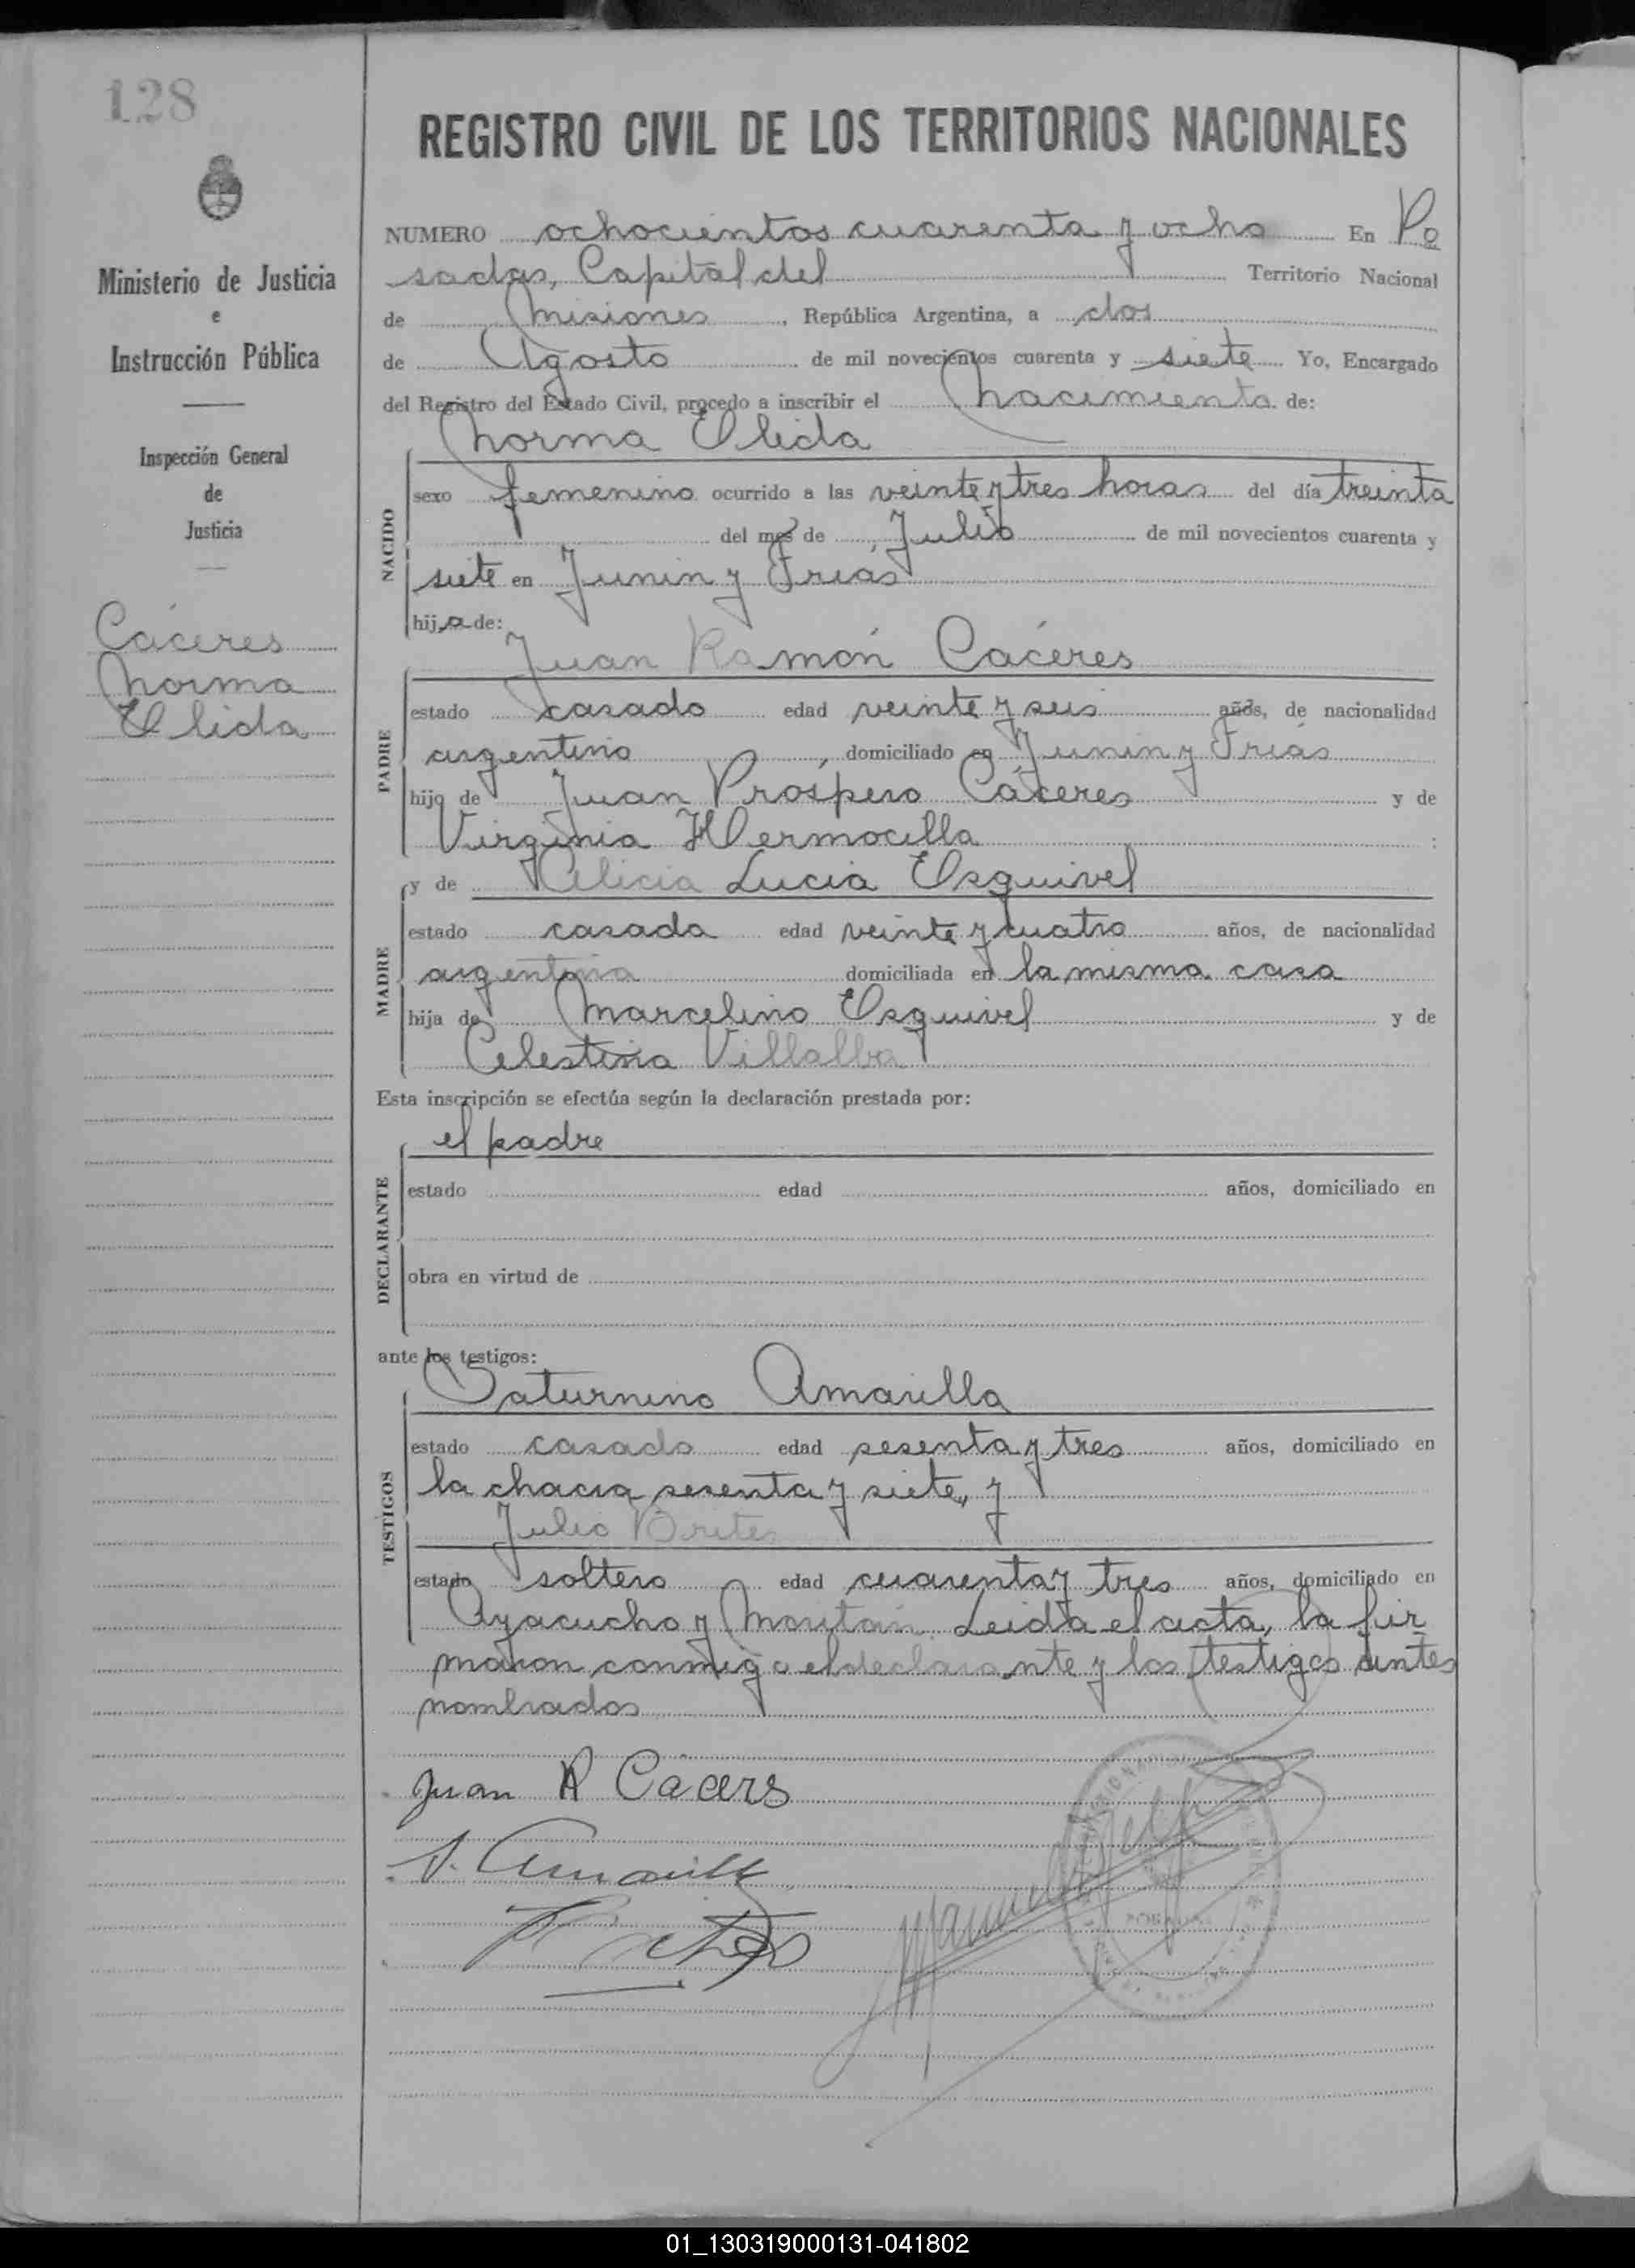 128
Ministerio de Justicia
e
Instrucción Pública
Inspección General
de
Justicia
Cáceres
Norma
Elida
REGISTRO CIVIL DE LOS TERRITORIOS NACIONALES
NUMERO ochocientos cuarenta y ocho En Po
sadas, Capital del Territorio Nacional
de Misiones, República Argentina, a dos
de Agosto de mil novecientos cuarenta y siete Yo, Encargado
del Registro del Estado Civil, procedo a inscribir el Nacimiento de:
Norma Elida
NACIDO
sexo femenino ocurrido a las veinte y tres horas del día treinta
del mes de Julio de mil novecientos cuarenta y
siete en Junin y Frias
hija de:
Juan Ramón Cáceres
PADRE
estado casado edad veinte y seis años, de nacionalidad
argentino, domiciliado en Junin y Frias
hijo de Juan Próspero Cáceres y de
Virginia Hermocilla;
y de Alicia Lucia Esquivel
MADRE
estado casada edad veinte y cuatro años, de nacionalidad
argentina domiciliada en la misma casa
hija de Marcelino Esquivel y de
Celestina Villalba
Esta inscripción se efectúa según la declaración prestada por:
el padre
DECLARANTE
estado edad años, domiciliado en
obra en virtud de
ante los testigos:
Saturnino Amarilla
TESTIGOS
estado casado edad sesenta y tres años, domiciliado en
la chacra sesenta y siete, y
Julio Brites
estado soltero edad cuarenta y tres años, domiciliado en
Ayacucho y Leida el acta, la fir
maron conmigo el declarante y los testigos antes
nombrados
Juan R Cácers
S. Amarilla
POSADAS
01_130319000131-041802